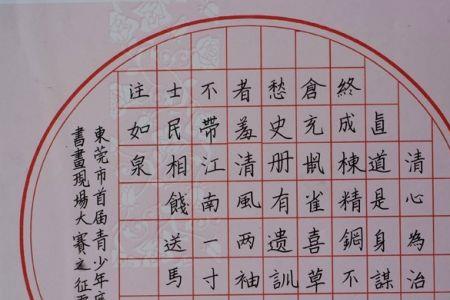 清心為治
直道是身謀
終成棟精鋼不
倉充鼠雀喜草
愁史册有遗訓
者羞清風两袖
不帶江南一寸
士民相餞送馬
注如泉
東莞市首届青少年
書畫現場大賽之征